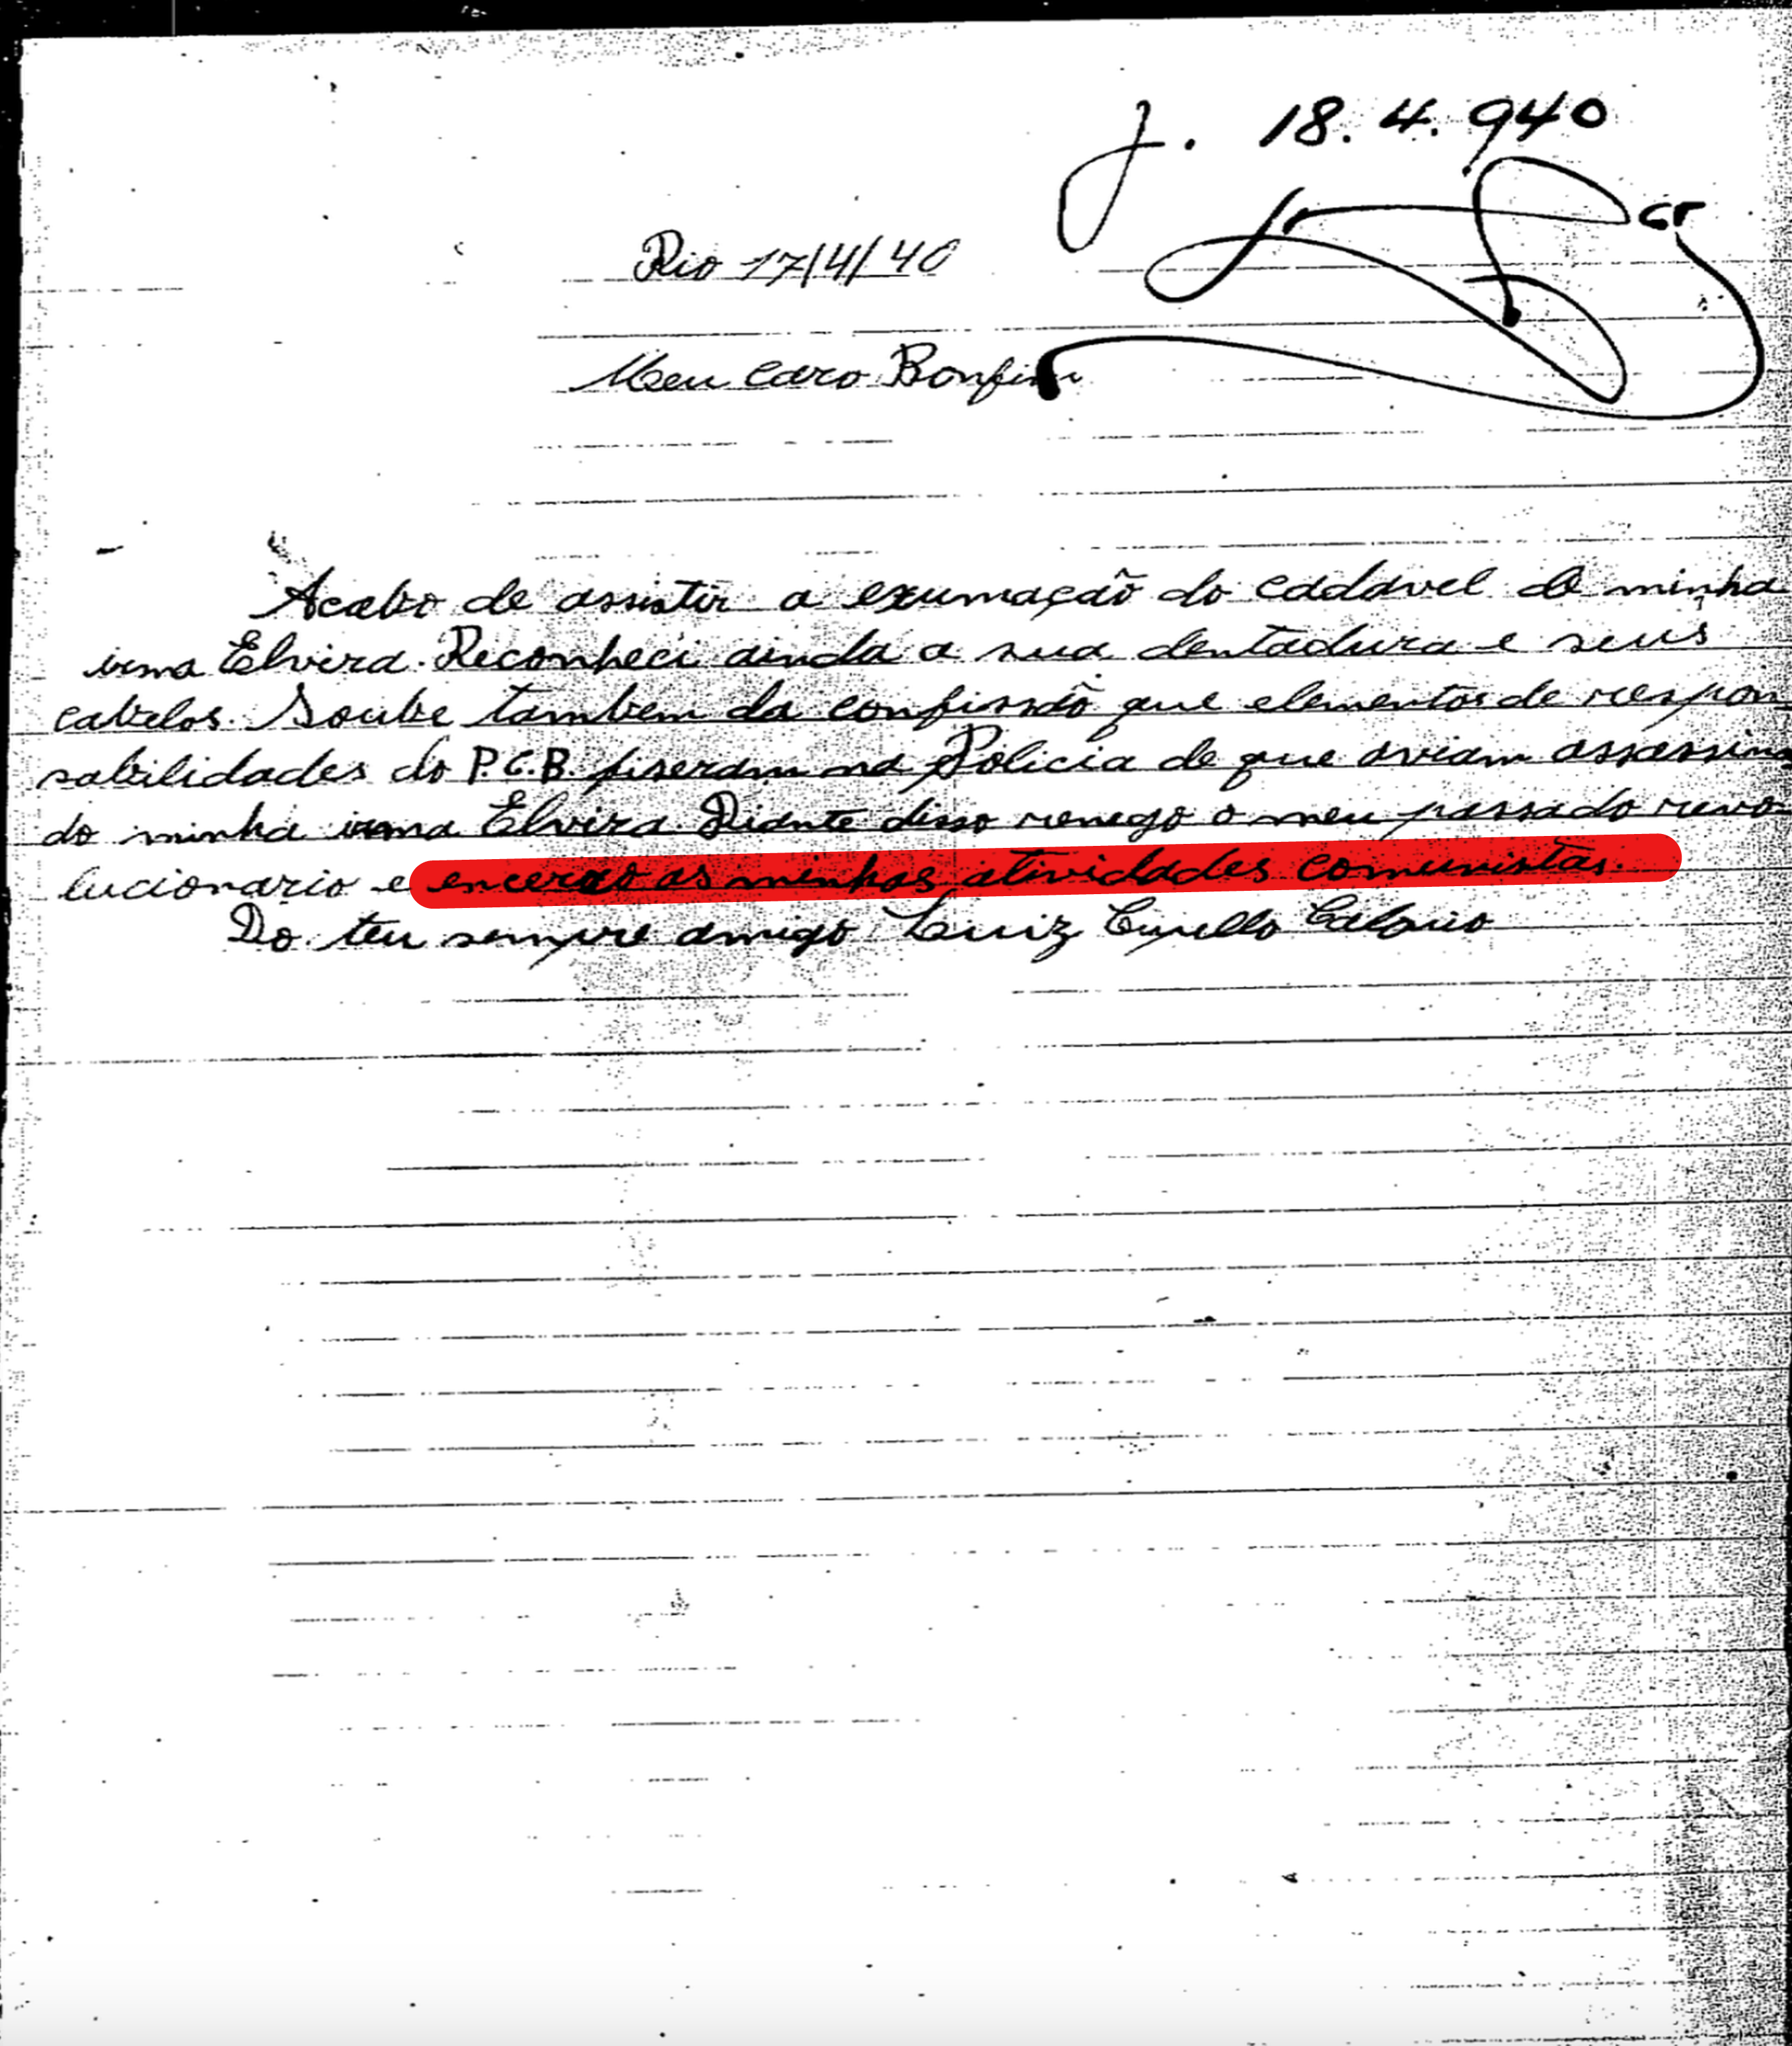 J. 18.4.940
Rio 17/4/40
Meu caro Bonfim
Acabo de assistir a exumação do cadavel de minha
irma Elvira. Reconheci ainda a sua dentadura e seus
cabelos. Soube tambem da confissão que elementos de respon
sabilidades do P.C.B. fiseram na Policia de que aviam assassina
do minha irma Elvira. Diante disso renego o meu passado revo
lucionario e encerro as minhas atividades comunistas.
Do teu sempre amigo Luiz Cupello Calonio